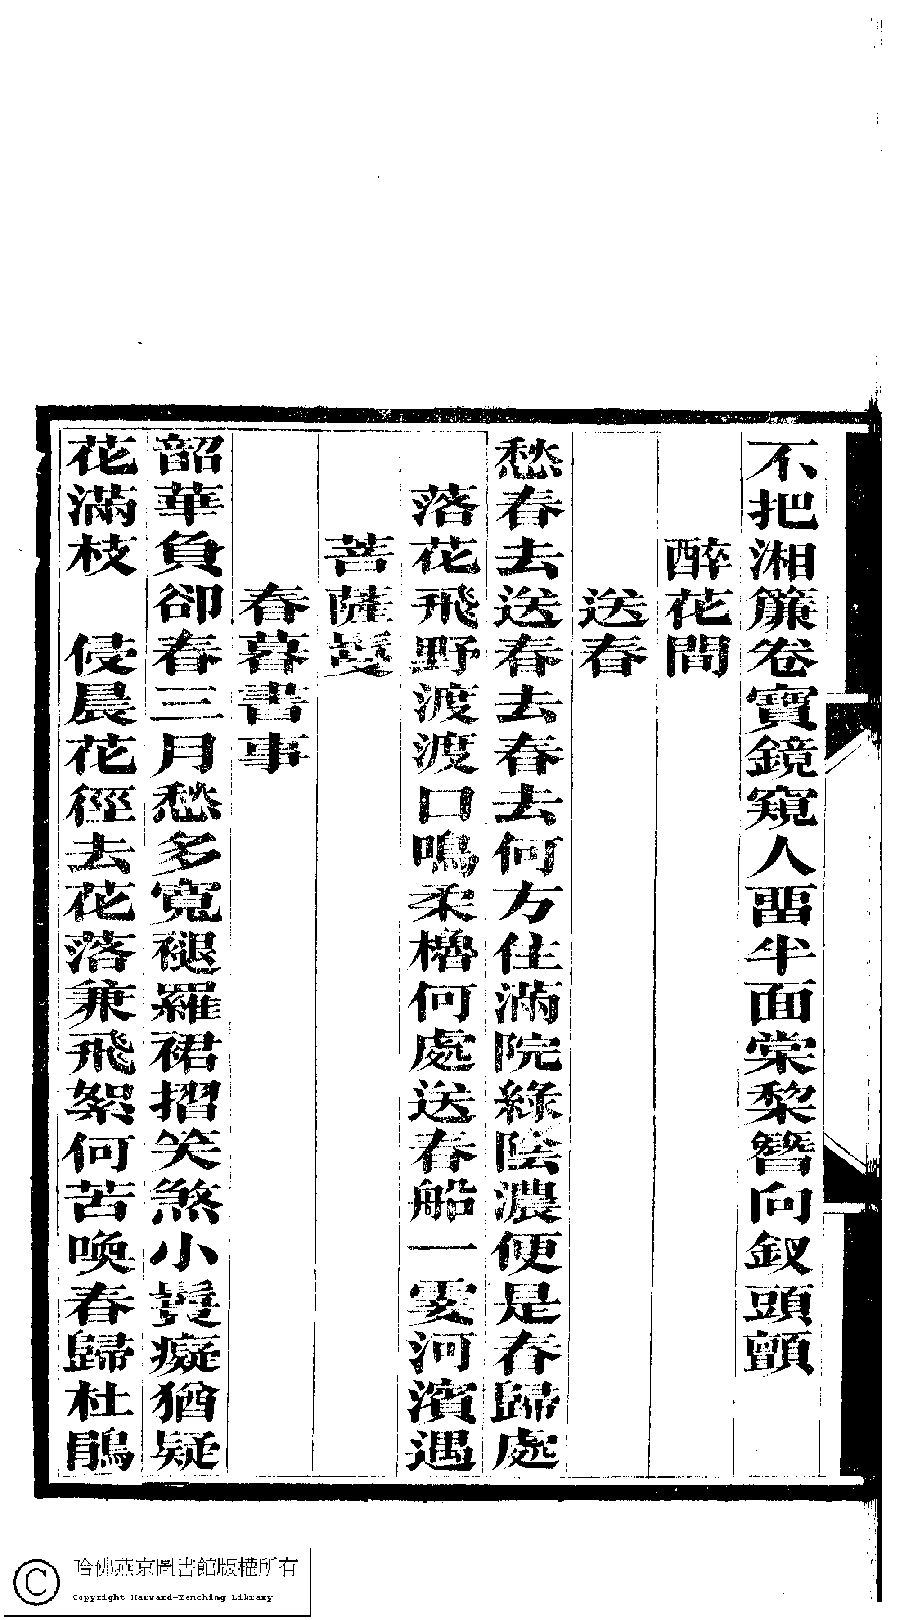 不把湘簾卷寶鏡窺人畱半面棠棃簪向釵頭顫
醉花間
送春
愁春去送春去春去何方住滿院綠陰濃便是春歸處
落花飛野渡渡口鳴柔櫓何處送春船一霎河濱遇
菩薩蠻
春暮書事
韶華負卻春三月愁多寬褪羅裙摺笑煞小鬟癡猶疑
花滿枝　侵晨花徑去花落兼飛絮何苦喚春歸杜鵑
哈佛燕京圖書館版權所有
Copyright Harvard-Yenching Library